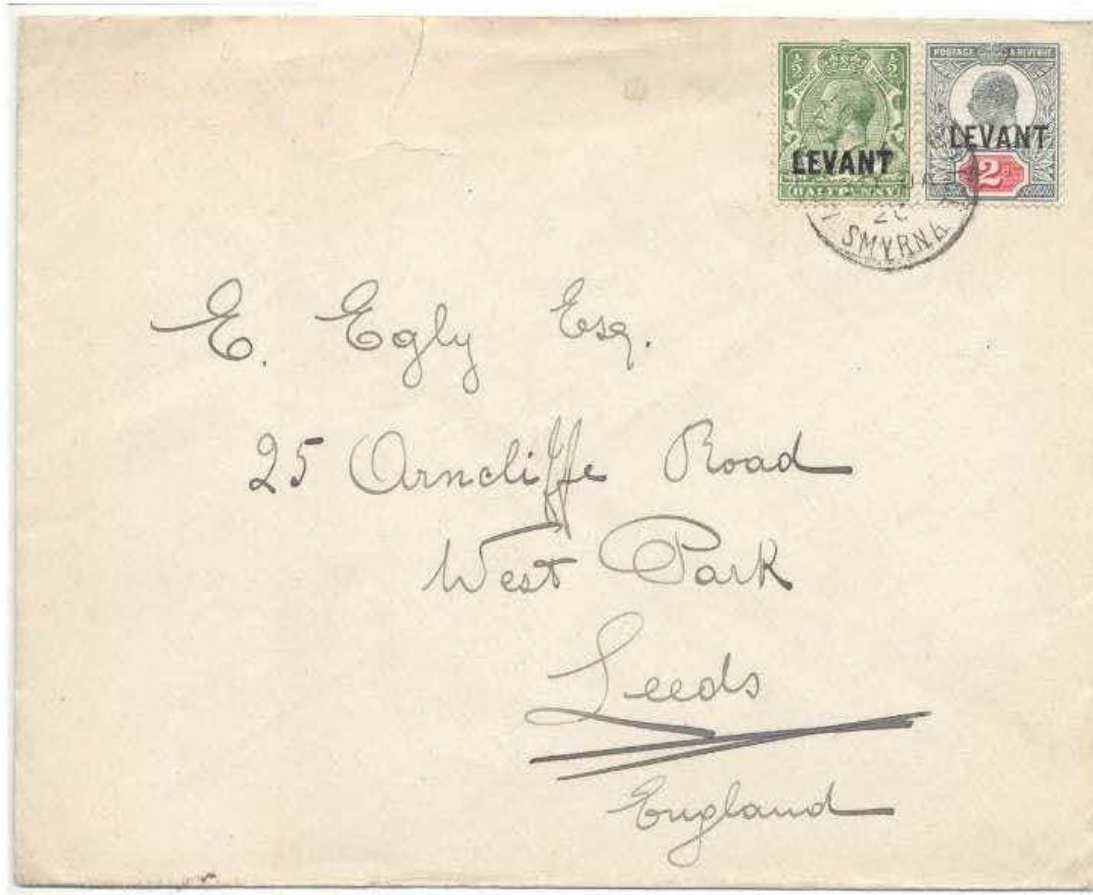 ½ ½
LEVANT
HALFPENNY
POSTAGE & REVENUE
LEVANT
2d
SMYRNA
E. Egly Esq.
25 Arncliffe Road
West Park
Leeds
England